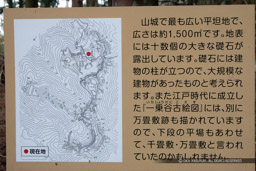 山城で最も広い平坦地で、
広さは約1,500㎡です。地表
には十数個の大きな礎石が
露出しています。礎石には建
物の柱が立つので、大規模な
建物があったものと考えられ
ます。また江戸時代に成立し
た『一乗谷古絵図』には、別に
万畳敷跡も描かれています
ので、下段の平場もあわせ
て、千畳敷・万畳敷と言わ
れていたのかもしれません。
現在地